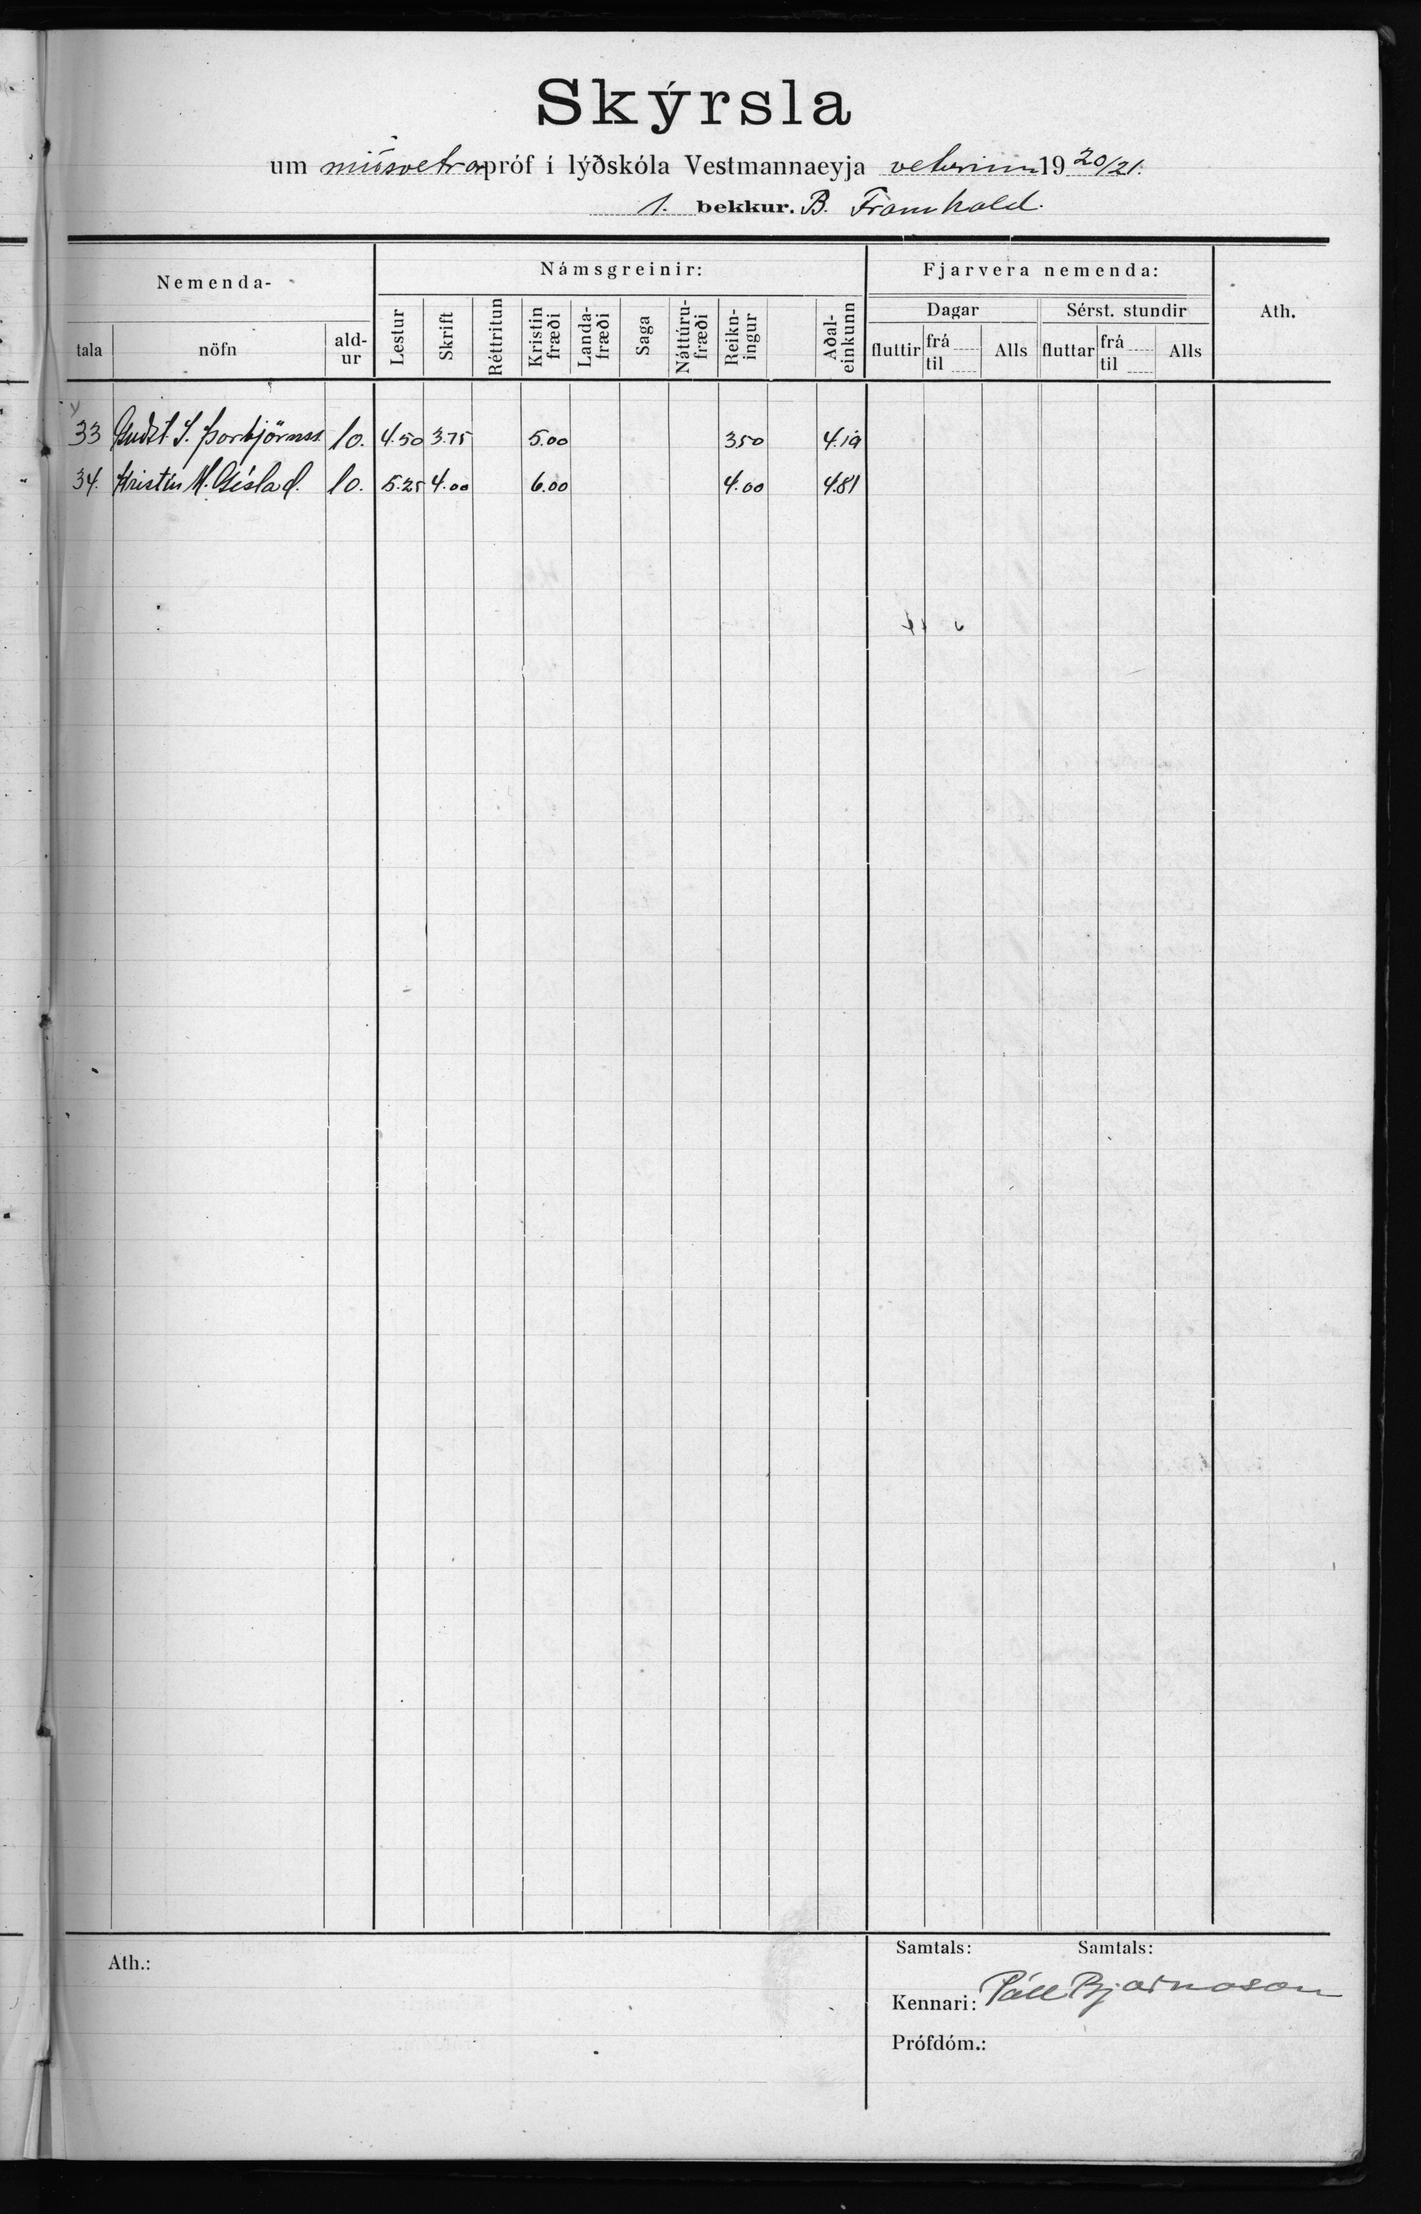 Skýrsla
um miðsvetrarpróf í lýðskóla Vestmannaeyja veturinn 1920/21.
1. bekkur. B. Framhald.
Nemenda- Námsgreinir: Fjarvera nemenda: Ath.
Dagar Sérst. stundir
tala nöfn ald-ur Lestur Skrift Réttritun Kristin fræði Landa-fræði Saga Náttúru-fræði Reikn-ingur Aðal-einkunn fluttir frá til Alls fluttar frá til Alls
33 S. Þorbjörnss. 10. 4.50 3.75 5.00 3.50 4.19
34. Kristín M. Gíslad. 10. 5.25 4.00 6.00 4.00 4.81
Ath.:
Samtals: Samtals:
Kennari: Páll Bjarnason
Prófdóm.: